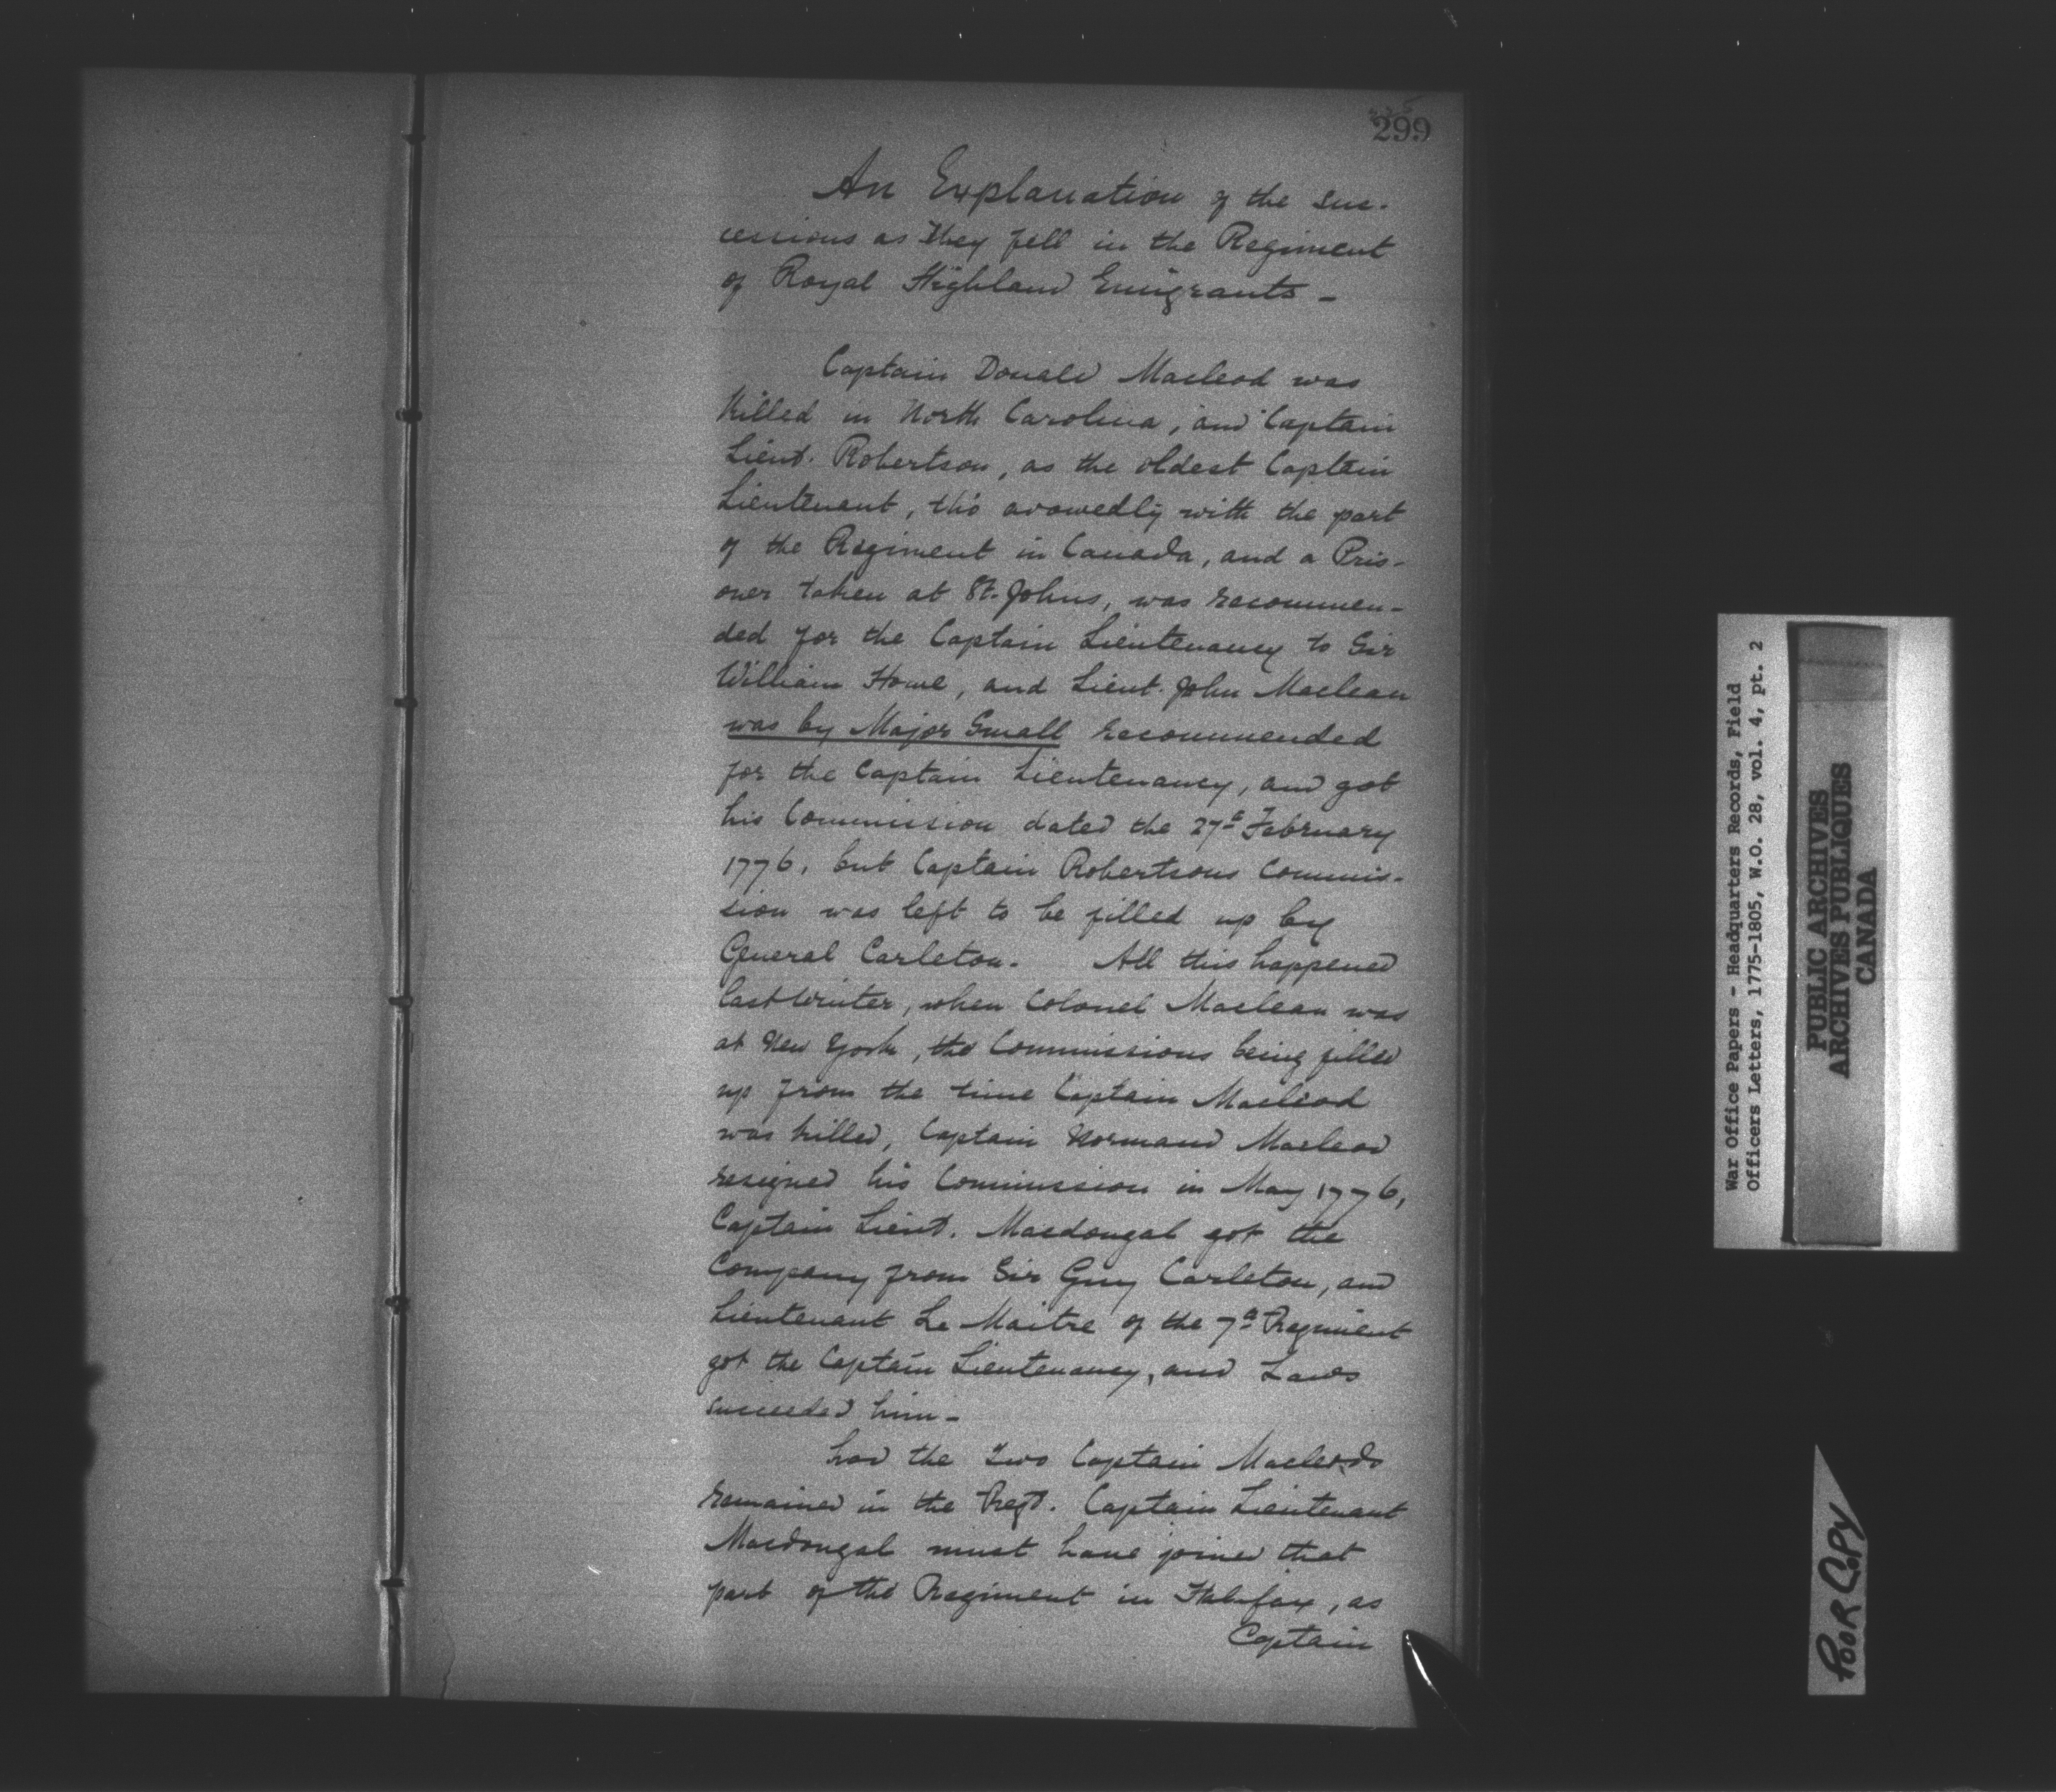 299
An Explanation of the suc-
cessions as they fell in the Regiment
of Royal Highland Emigrants -
Captain Donald Macleod was
killed in North Carolina, and Captain
Lieut. Robertson, as the oldest Captain
Lieutenant, tho' avowedly with the part
of the Regiment in Canada, and a Pris-
oner taken at St. Johns, was recommen-
ded for the Captain Lieutenancy to Sir
William Howe, and Lieut. John Maclean
was by Major Small recommended
for the Captain Lieutenancy, and got
his Commission dated the 27th February
1776, but Captain Robertsons Commis-
sion was left to be filled up by
General Carleton. All this happened
last winter, when Colonel Maclean was
at New York, the Commissions being filled
up from the time Captain Macleod
was killed, Captain Normand Macleod
resigned his Commission in May 1776,
Captain Lieut. Macdougal got the
Company from Sir Guy Carleton, and
Lieutenant Le Maitre of the 7th Regiment
got the Captain Lieutenancy, and Laws
succeeded him -
had the two Captain Macleods
remained in the Regt. Captain Lieutenant
Macdougal must have joined that
part of the Regiment in Halifax, as
Captain
War Office Papers - Headquarters Records, Field
Officers Letters, 1775-1805, W.O. 28, vol. 4, pt. 2
PUBLIC ARCHIVES
ARCHIVES PUBLIQUES
CANADA
POOR COPY